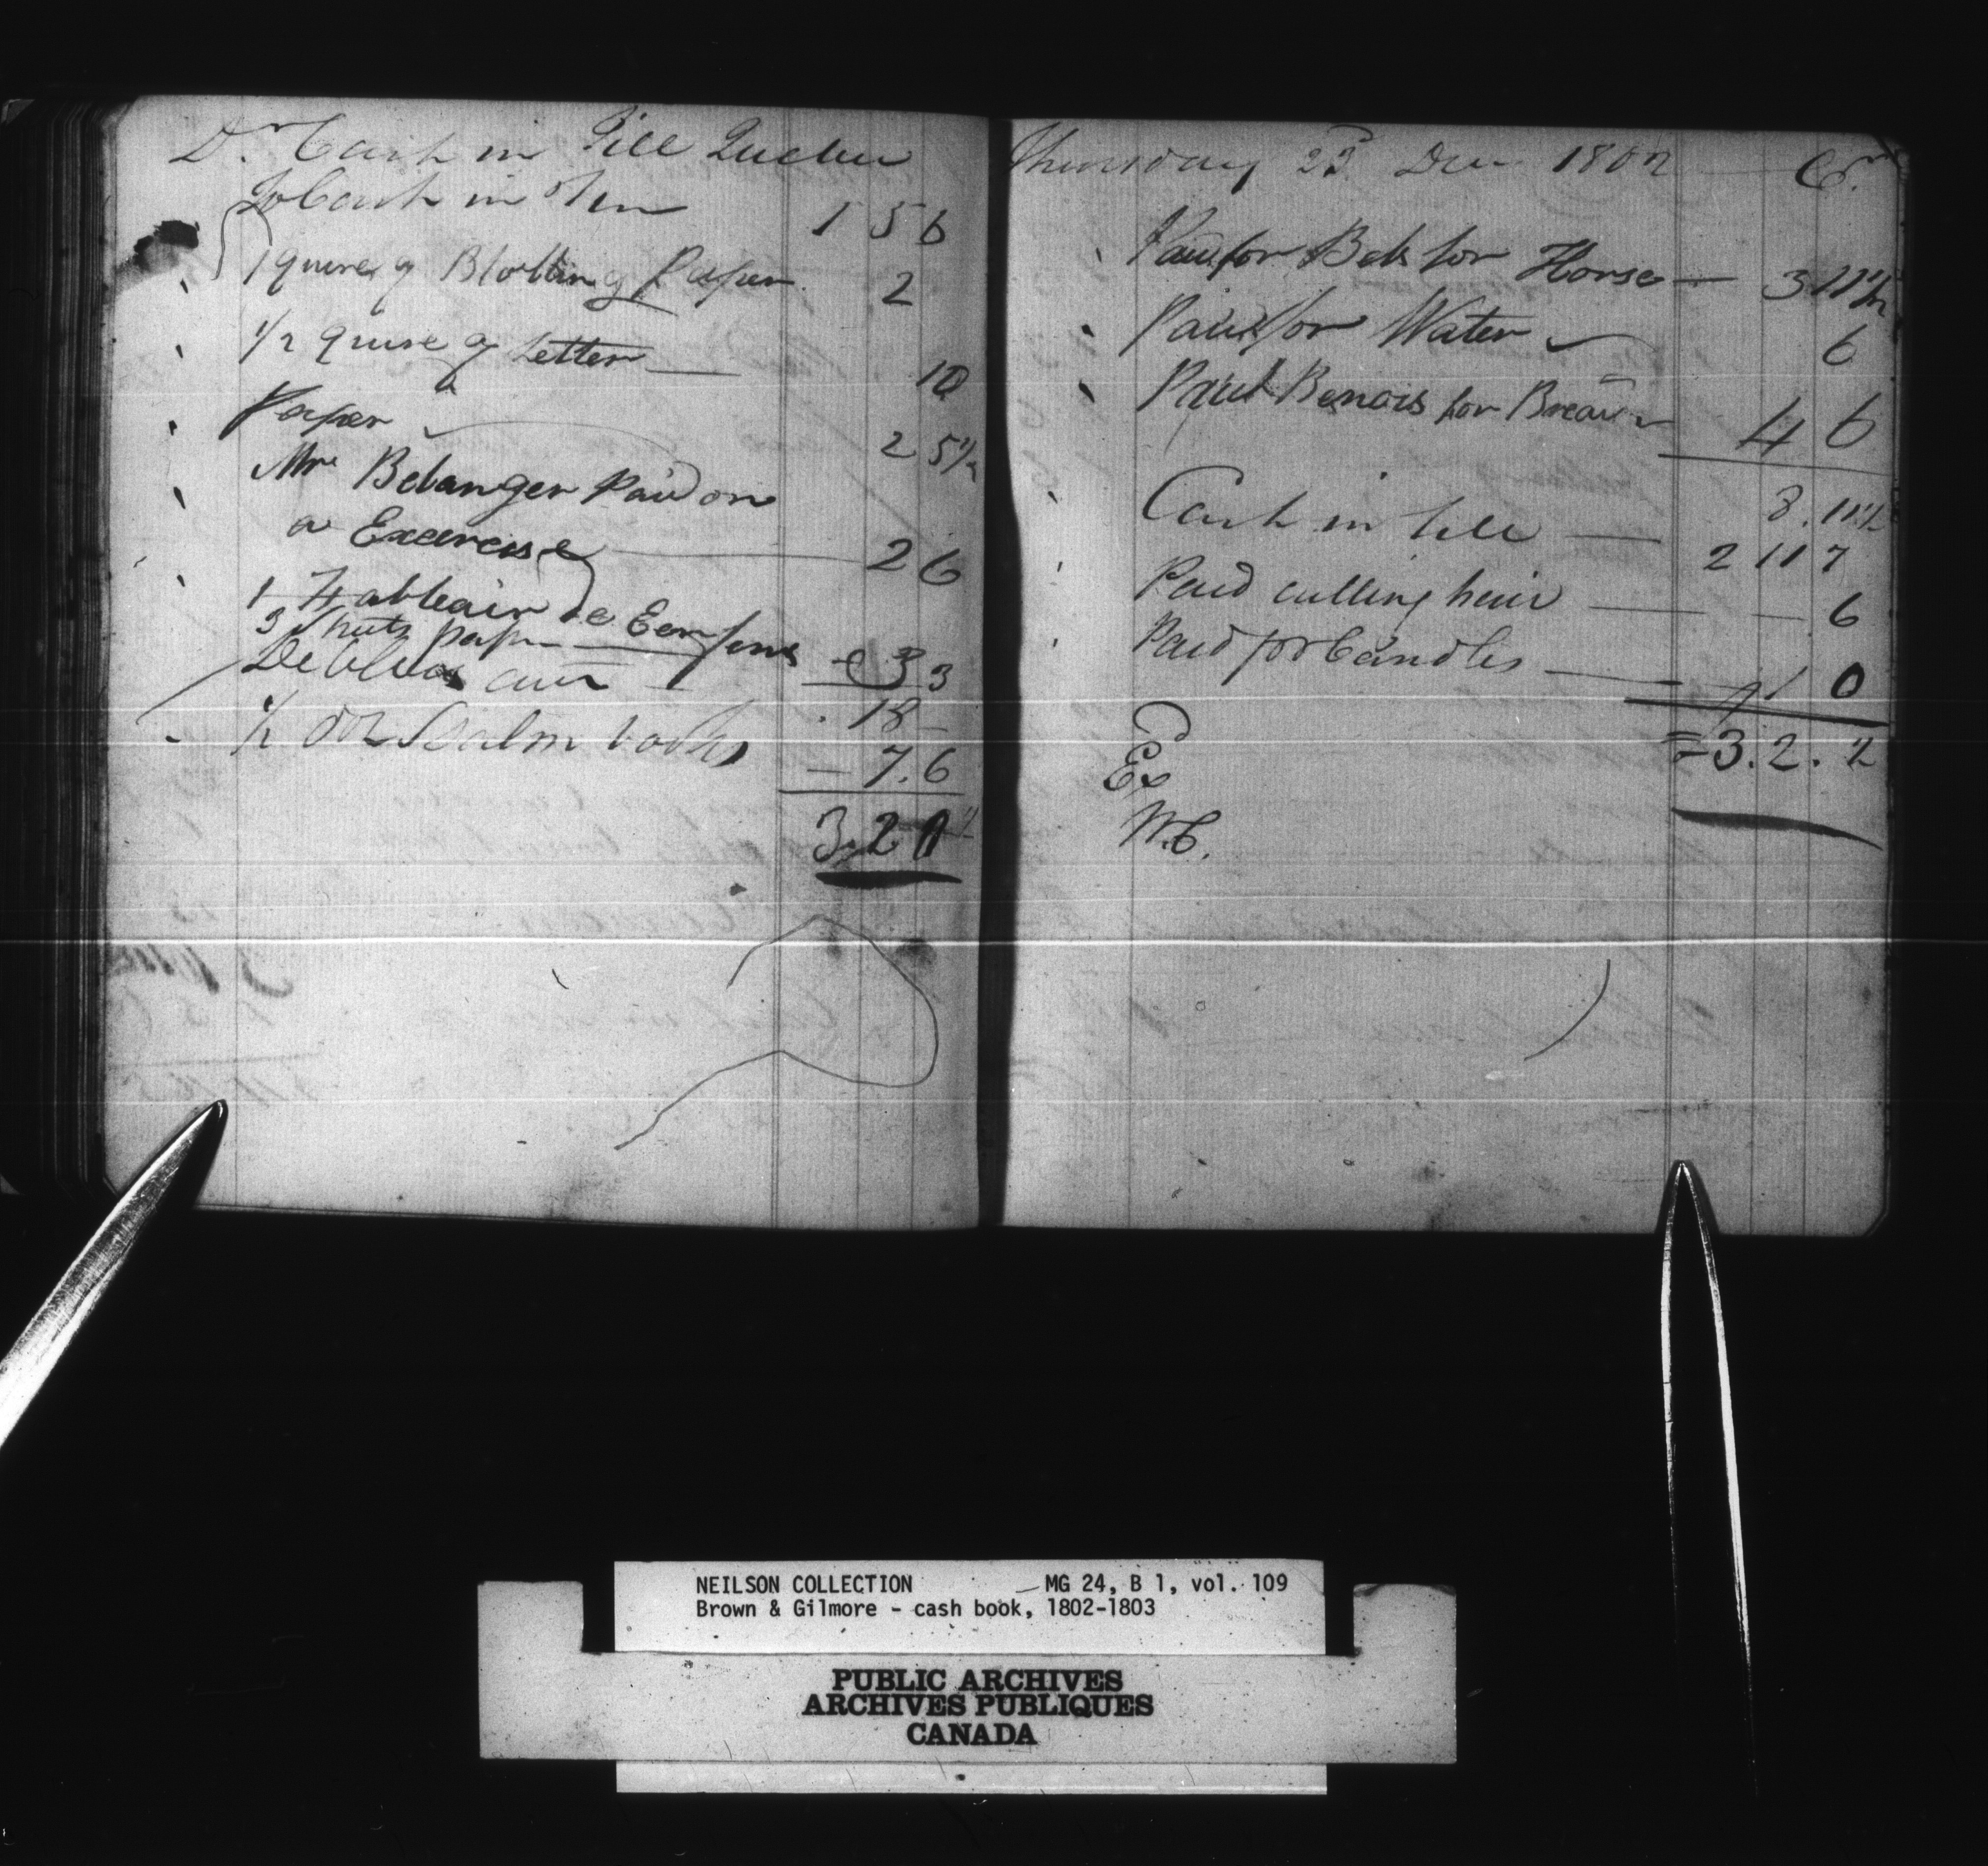 Dr. Cash in Till Quebec
To Cash in
1 5 6
1 quire of Blotting Paper 2
1/2 quire of Letter 10
Paper 2 5 1/2
Mr Belanger Paid on
a Exercise 2 6
1 de
3 Shets paper 3 3
18
1/2 Doz Psalm books 7.6
3.2.0 1/2
Thursday 23d Decr 1802 Cr.
Paid for for Horse 3 11 1/2
Paid for Water 6
Paid Benois for Bread 4 6
8.11 1/2
Cash in till 2 11 7
Paid cutting hair 6
Paid for Candles 1 0
3.2. 1/2
Ex
W.C.
NEILSON COLLECTION — MG 24, B 1, vol. 109
Brown & Gilmore - cash book, 1802-1803
PUBLIC ARCHIVES
ARCHIVES PUBLIQUES
CANADA